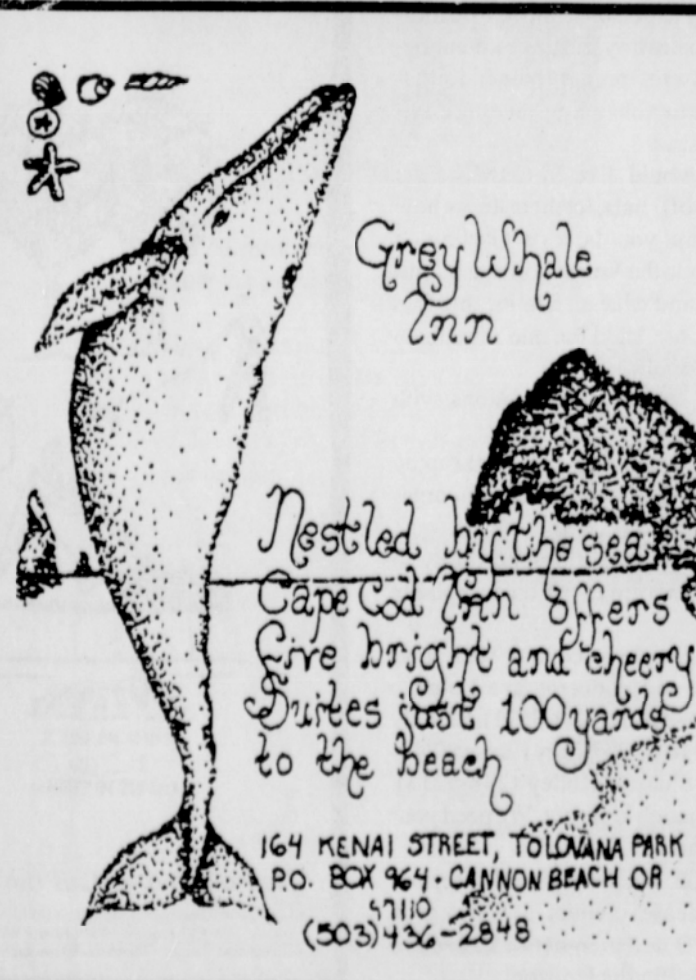 Grey Whale
Inn
Nestled by the sea
Cape Cod Inn offers
five bright and cheery
Suites just 100 yards
to the beach
164 KENAI STREET, TOLOVANA PARK
P.O. BOX 964 · CANNON BEACH OR
97110
(503) 436-2848